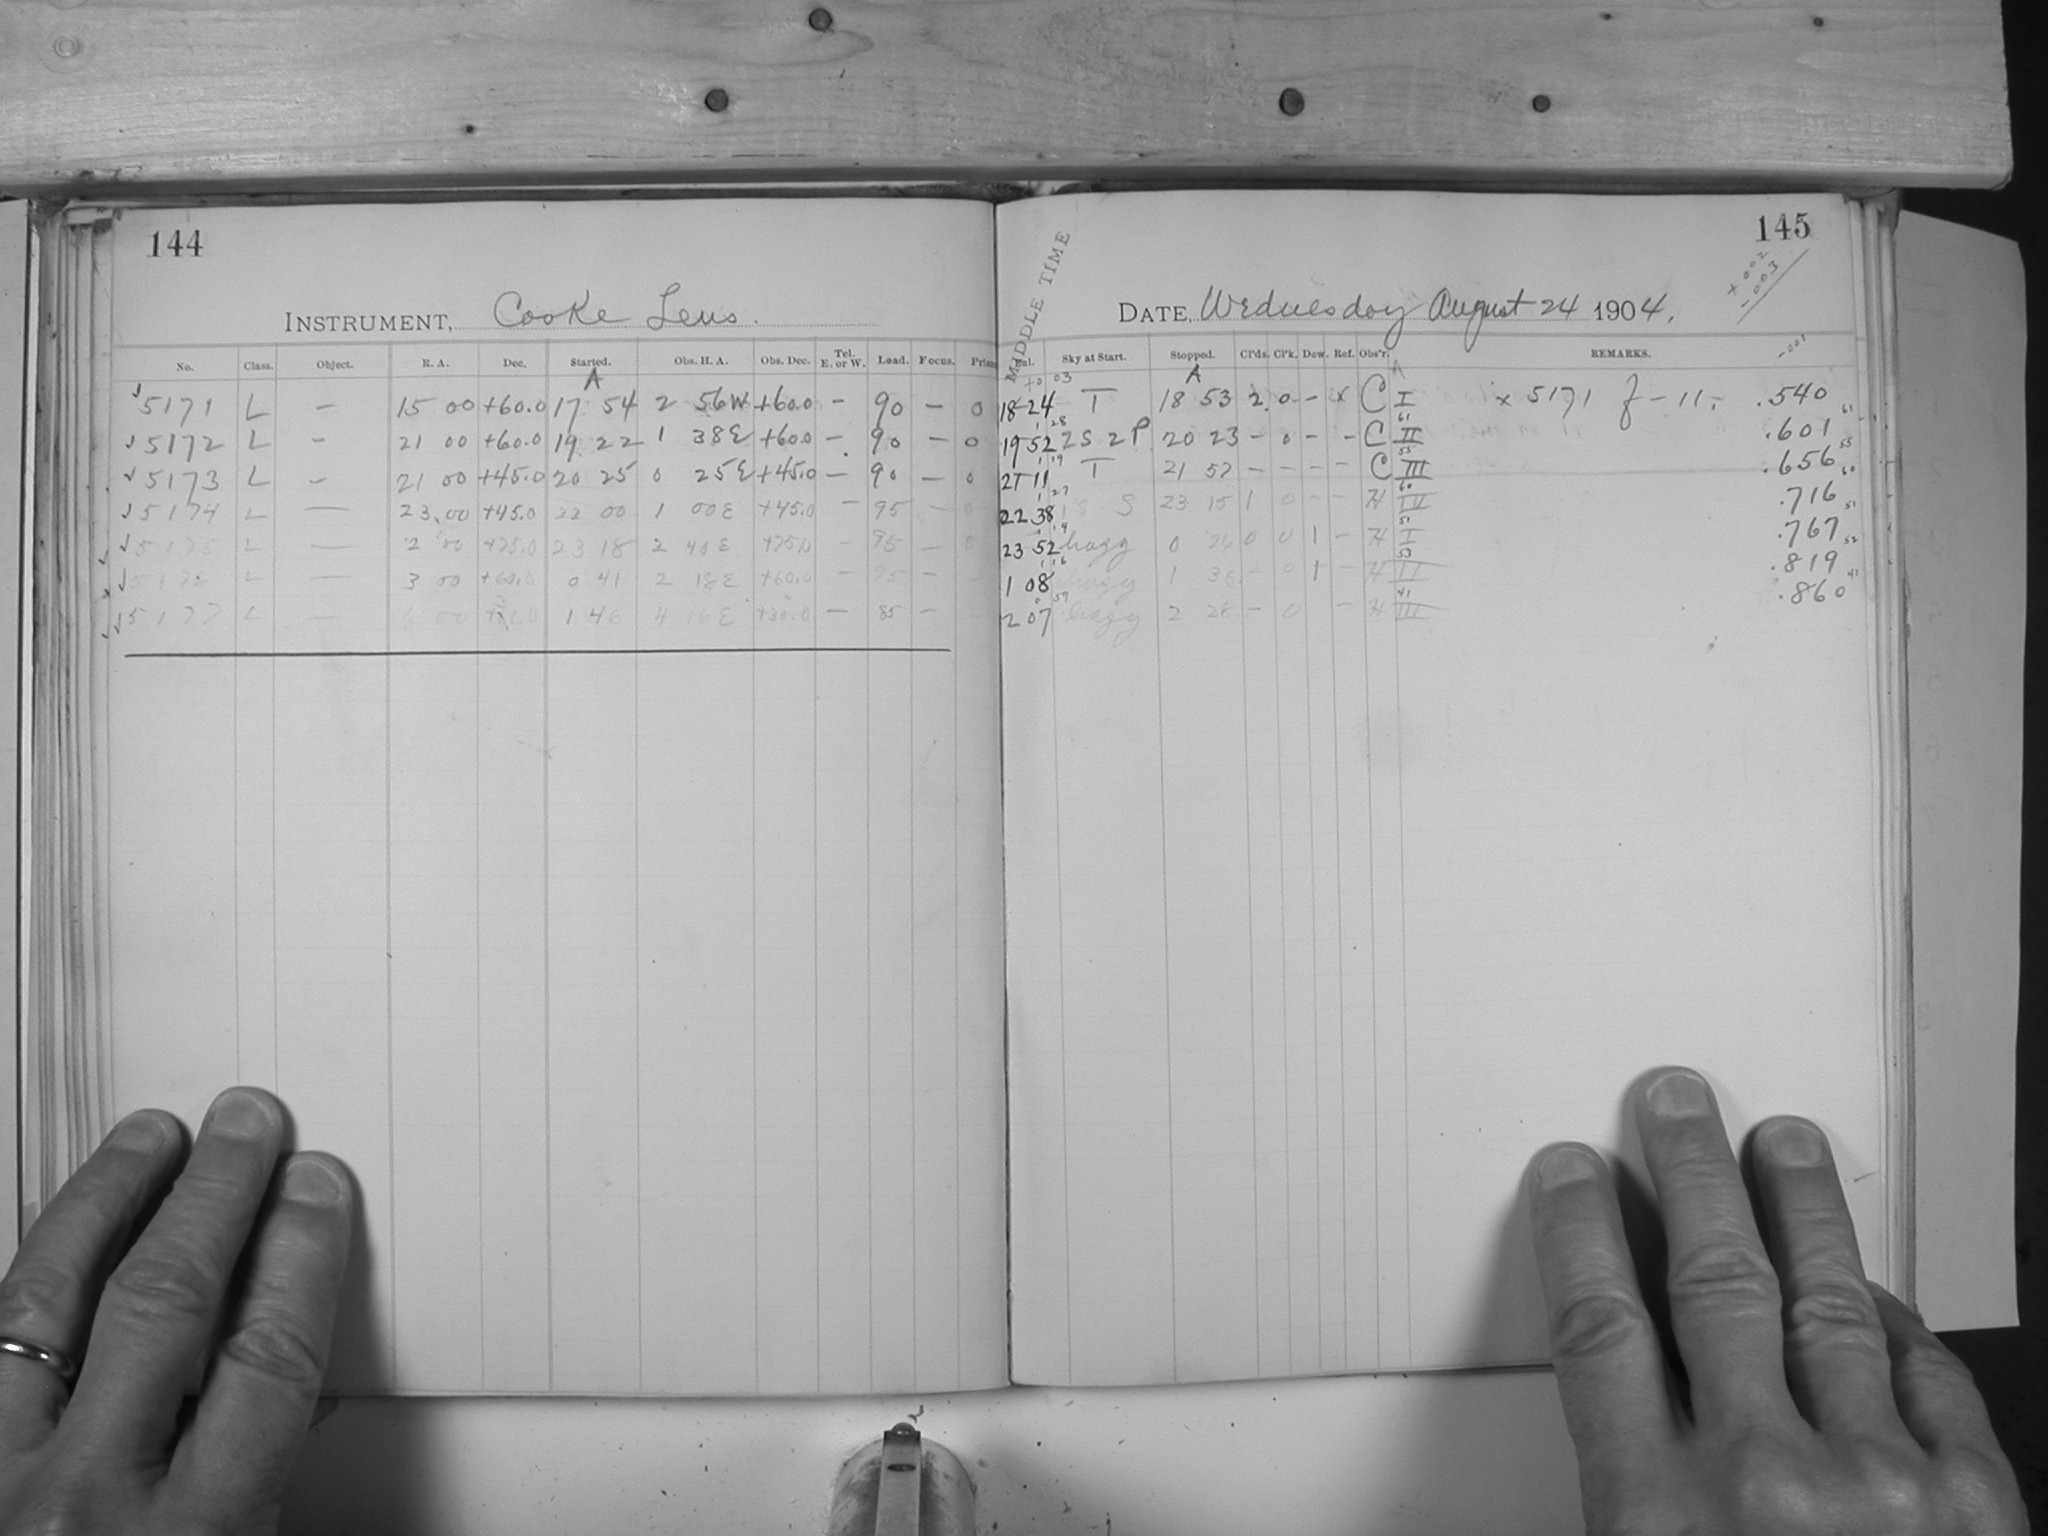 144
INSTRUMENT, Cooke Lens.
No. Class. Object. R. A. Dec. Started. Obs. H. A. Obs. Dec. Tel. E. or W. Lead. Focus. Prism
A
5171 L — 15 00 +60.0 17 54 2 56W +60.0 — 90 — 0
5172 L — 21 00 +60.0 19 22 1 38E +60.0 — 90 — 0
5173 L — 21 00 +45.0 20 25 0 25E +45.0 — 90 — 0
5174 L — 23 00 +45.0 22 00 1 00E +45.0 — 95 — 0
5175 L — 2 00 +75.0 23 18 2 40E +75.0 — 95 — 0
5176 L — 3 00 +60.0 0 41 2 18E +60.0 — 95 —
5177 L — 6 00 1 46 4 16E +30.0 — 85 —
145
+002
-003
MIDDLE TIME
DATE, Wednesday August 24 1904.
Sky at Start. Stopped. Cl'ds. Cl'k. Dew. Ref. Obs'r. REMARKS.
-001
A A
18 24 T 18 53 2 0 — x C I x 5171 f - 11- .540
19 52 2S 2P. 20 23 — 0 — — C II .601
21 11 T 21 57 — — — — C III .656
22 38 S S 23 15 1 0 — — H IV .716
23 52 hazy 0 26 0 0 1 — H I .767
1 08 hazy 1 36 — 0 1 — H II .819
2 07 hazy 2 28 — 0 — H III .860